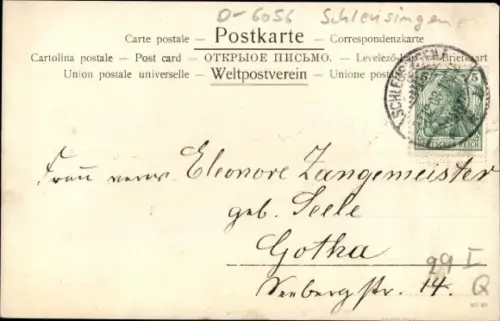 D-6056 Schleusingen
Carte postale – Postkarte – Correspondenzkarte
Cartolina postale – Post card – ОТКРЫТОЕ ПИСЬМО. – Levelező-
Union postale universelle – Weltpostverein – Unione
SCHLEUSINGEN
5
DEUTSCHES REICH
Frau verw. Eleonore Zangemeister
geb. Seele
Gotha
Seebergstr. 14.
29 I
Q